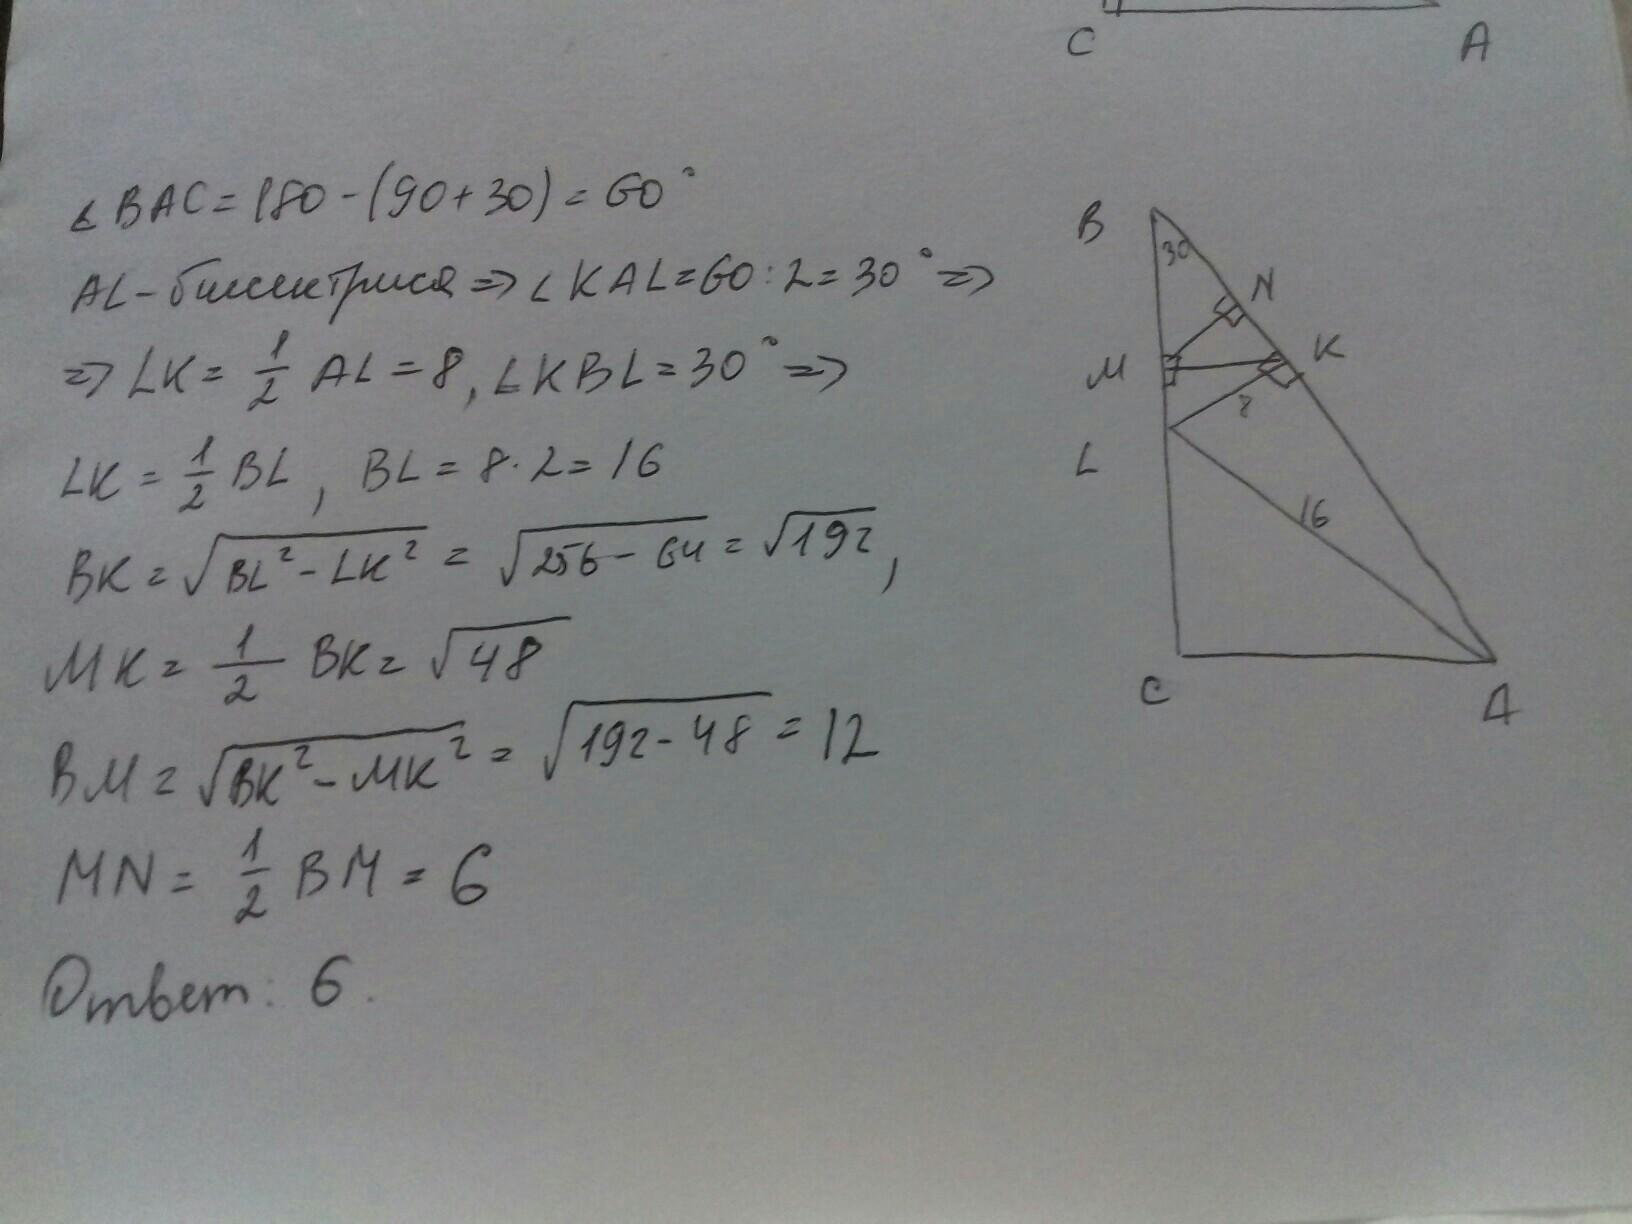 C A
∠BAC = 180 - (90 + 30) = 60°
AL - биссектриса => ∠KAL = 60 : 2 = 30° =>
=> LK = 1/2 AL = 8, ∠KBL = 30° =>
LK = 1/2 BL, BL = 8 · 2 = 16
BK = √(BL² - LK²) = √(256 - 64) = √192,
MK = 1/2 BK = √48
BM = √(BK² - MK²) = √(192 - 48) = 12
MN = 1/2 BM = 6
Ответ: 6.
B
30
N
K
M
8
L
16
C A